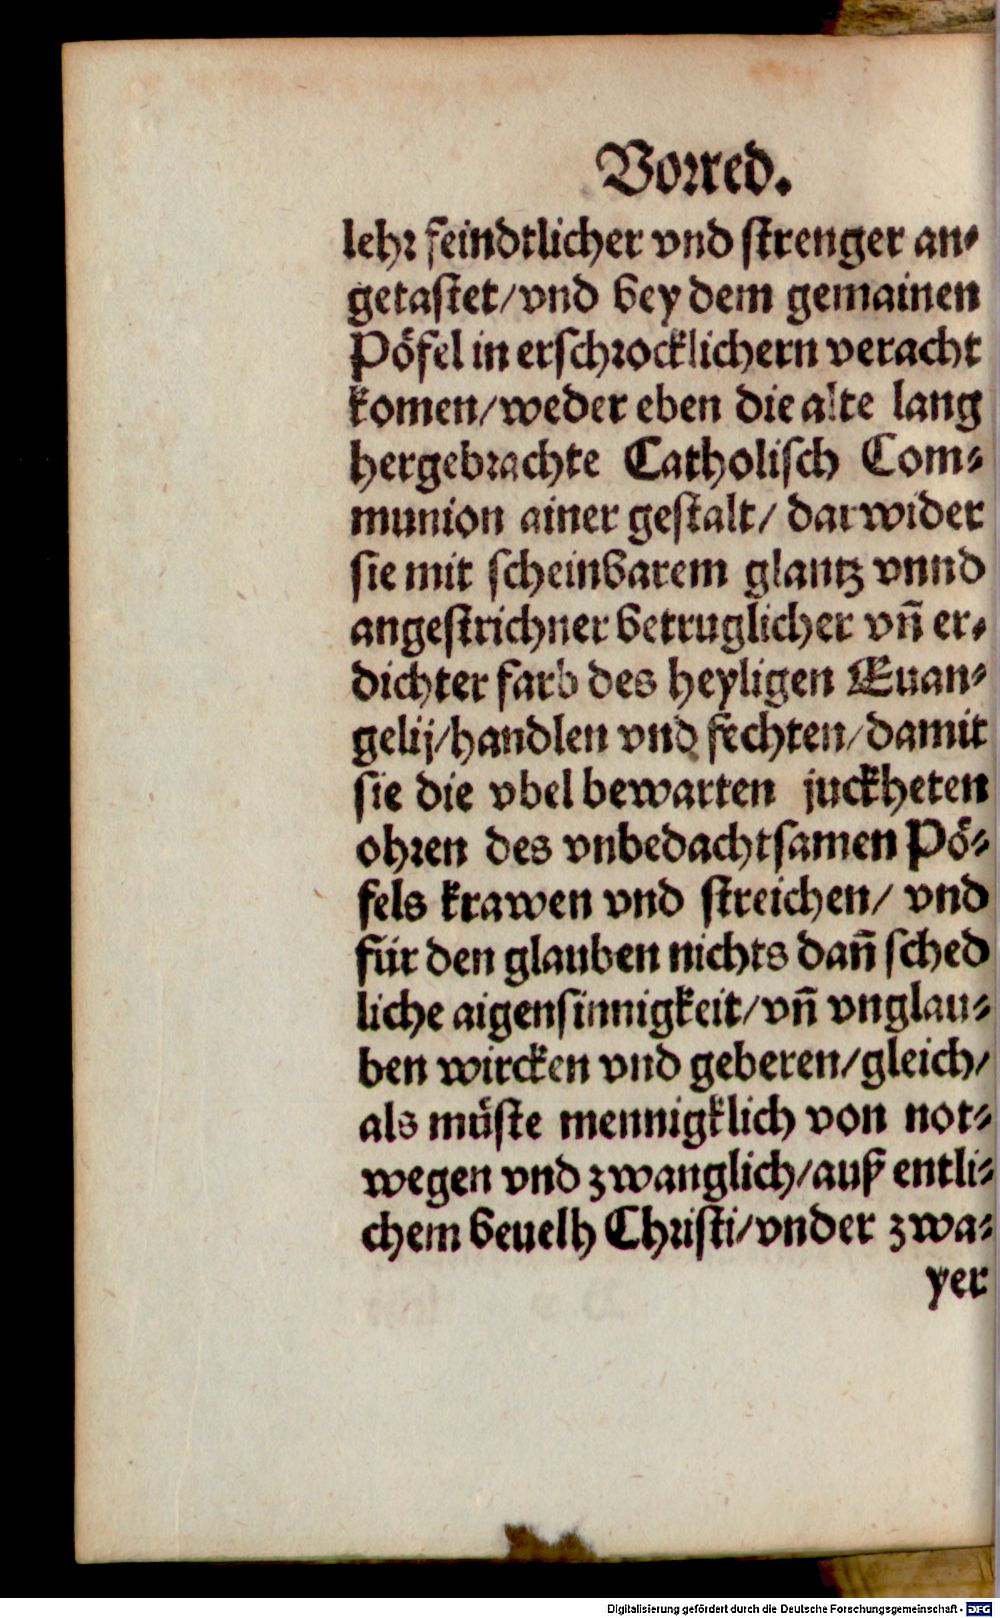 Vorred.
lehr feindtlicher vnd strenger an-
getastet/vnd bey dem gemainen
Pöfel in erschrocklichern veracht
komen/weder eben die alte lang
hergebrachte Catholisch Com-
munion ainer gestalt/ darwider
sie mit scheinbarem glantz vnnd
angestrichner betruglicher vñ er-
dichter farb des heyligen Euan-
gelij/handlen vnd fechten/damit
sie die vbel bewarten juckheten
ohren des vnbedachtsamen Pö-
fels krawen vnd streichen/ vnd
für den glauben nichts dañ sched
liche aigensinnigkeit/vñ vnglau-
ben wircken vnd geberen/gleich/
als müste mennigklich von not-
wegen vnd zwanglich/auß entli-
chem beuelh Christi/vnder zwa-
yer
Digitalisierung gefördert durch die Deutsche Forschungsgemeinschaft - DFG